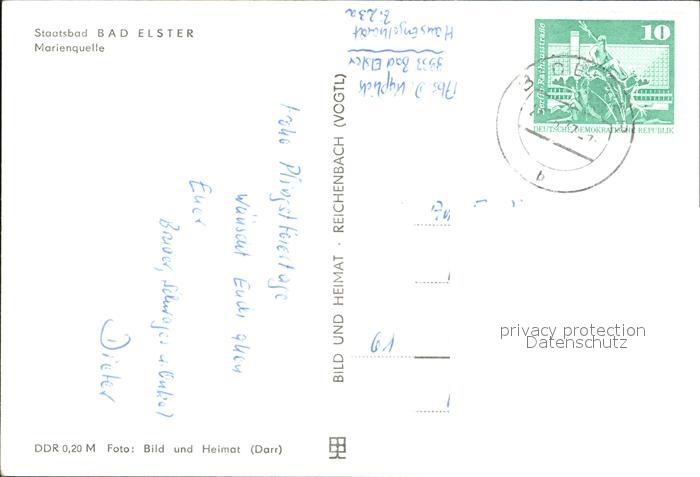 Staatsbad BAD ELSTER
Marienquelle
Frohe Pfingstfeiertage
wünscht Euch allen
Euer
Bruder, Schwager u. Onkel
Dieter
DDR 0,20 M Foto: Bild und Heimat (Darr)
BILD UND HEIMAT · REICHENBACH (VOGTL)
Abs. D.
9933 Bad Elster
Z. 23a
10
Berlin, Rathausstraße
DEUTSCHE DEMOKRATISCHE REPUBLIK
b
privacy protection
Datenschutz